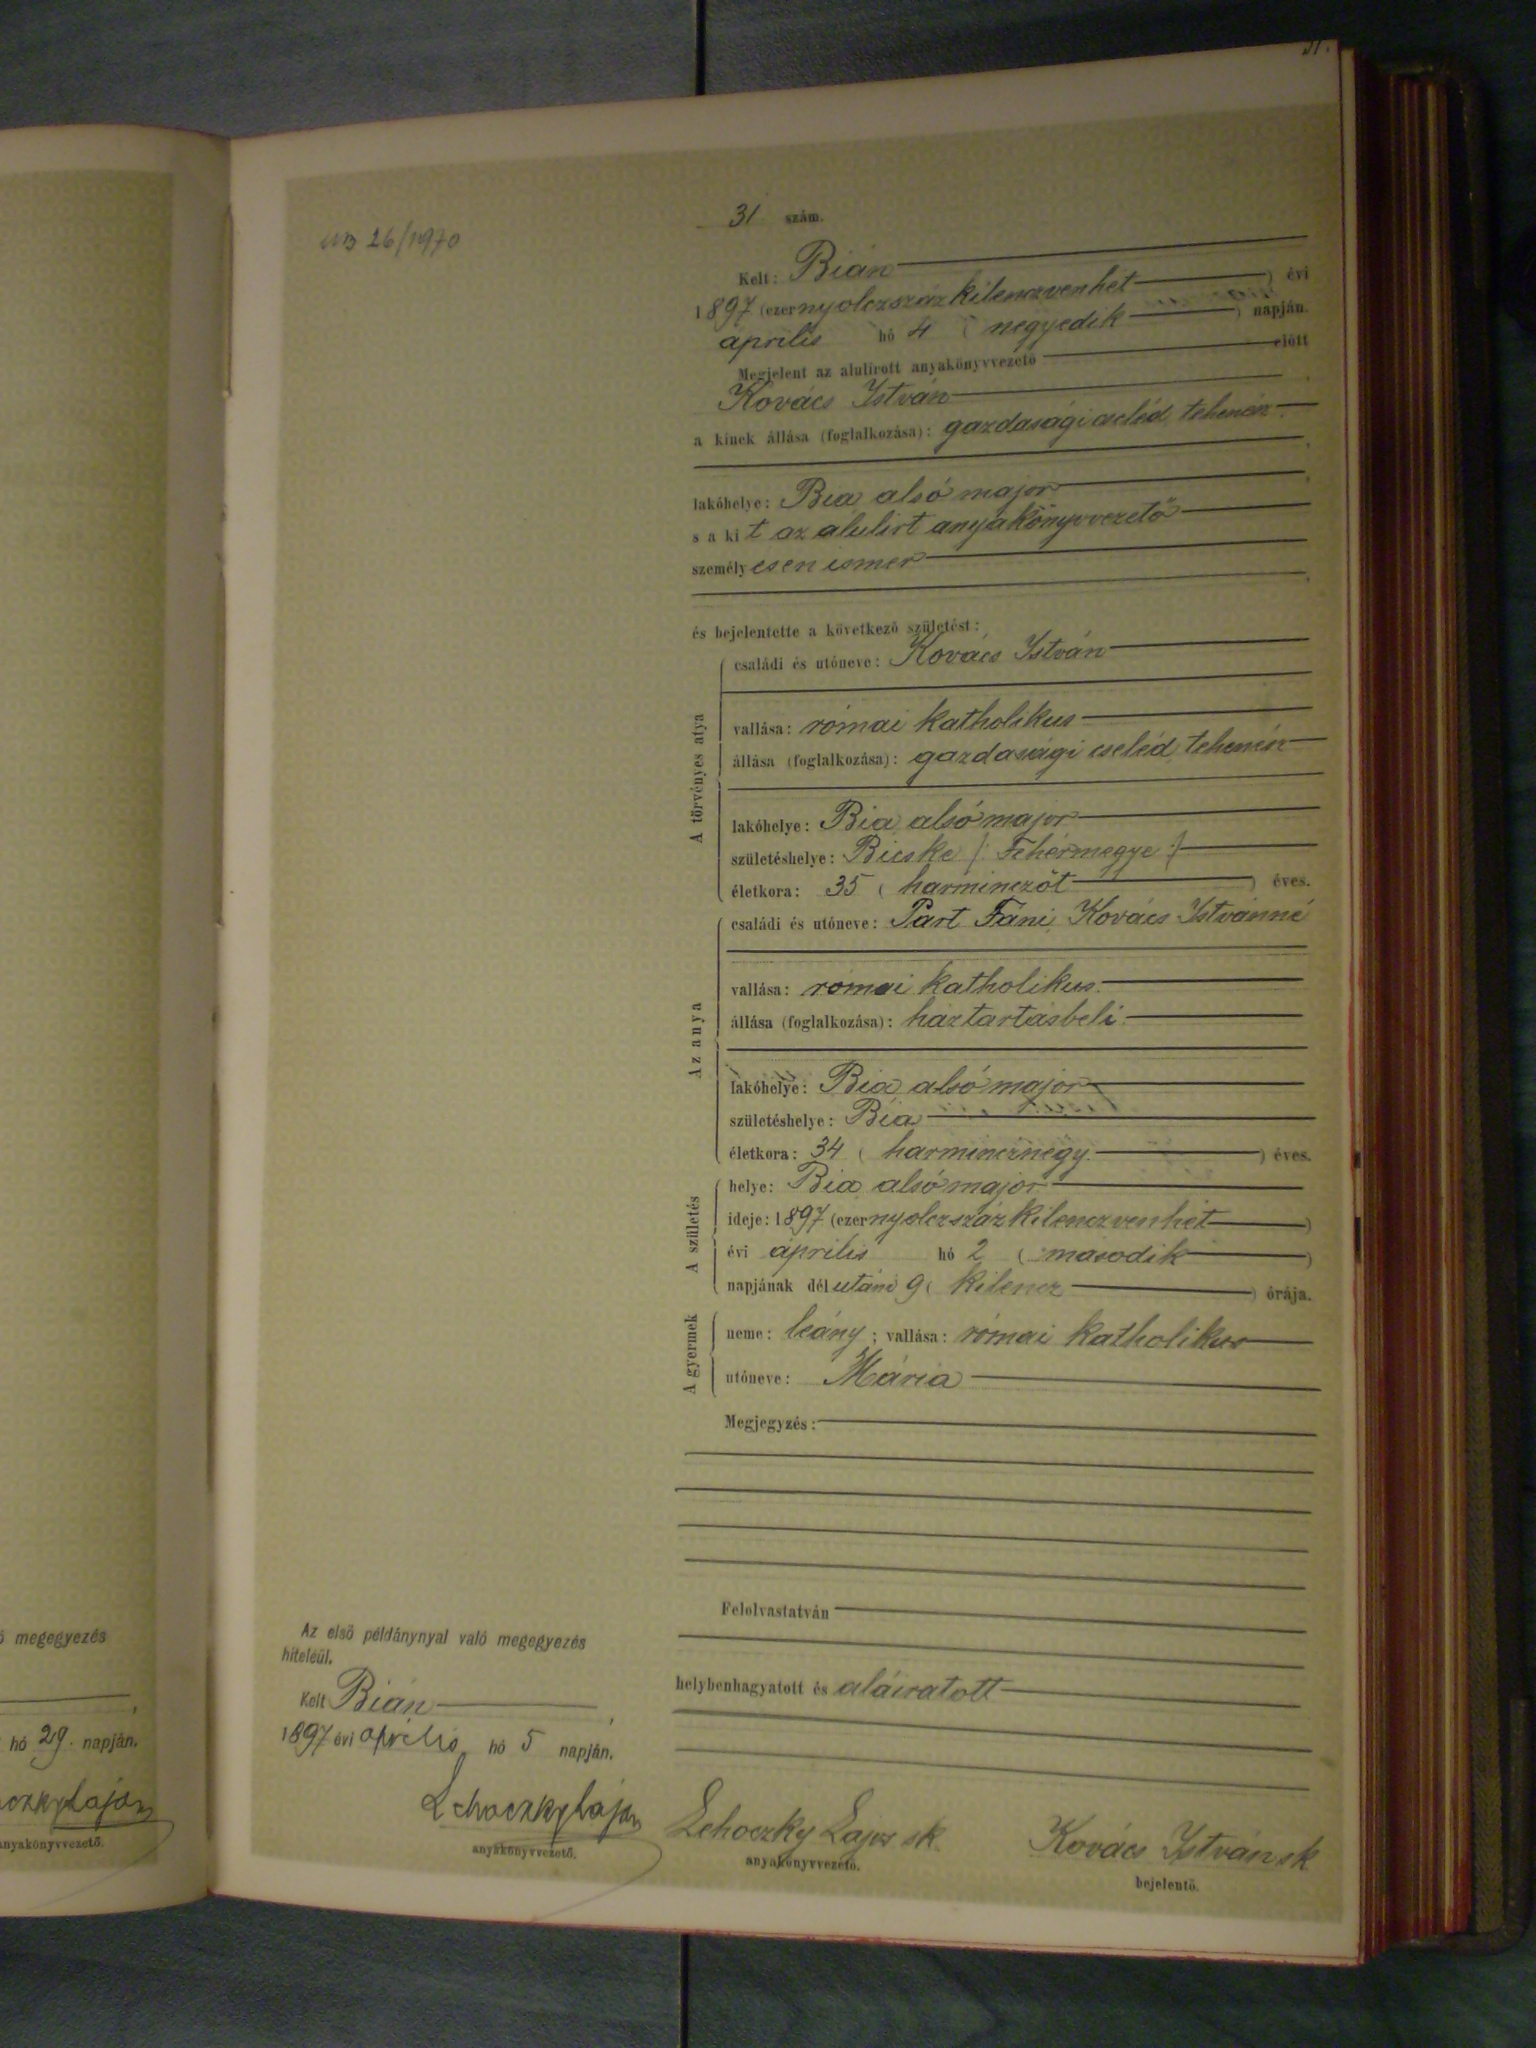 31.
26/1970
31 szám.
Kelt: Bián
1897 (ezernyolczszázkilenczvenhét) évi
április hó 4 (negyedik) napján.
Megjelent az alulirott anyakönyvvezető előtt
Kovács István
a kinek állása (foglalkozása): gazdasági cseléd, tehenész
lakóhelye: Bia alsó major
s a kit az alulirt anyakönyvvezető
személyesen ismer
és bejelentette a következő születést:
A törvényes atya
családi és utóneve: Kovács István
vallása: római katholikus
állása (foglalkozása): gazdasági cseléd, tehenész
lakóhelye: Bia, alsó major
születéshelye: Bicske /: Fehérmegye :/
életkora: 35 (harminczöt) éves.
Az anya
családi és utóneve: Part Fáni, Kovács Istvánné
vallása: római katholikus.
állása (foglalkozása): háztartásbeli.
lakóhelye: Bia, alsó major
születéshelye: Bia
életkora: 34 (harmincznégy) éves.
A születés
helye: Bia, alsó major.
ideje: 1897 (ezernyolczszázkilenczvenhét)
évi április hó 2 (második)
napjának délutáni 9 (kilencz) órája.
A gyermek
neme: leány; vallása: római katholikus
utóneve: Mária
Megjegyzés:
Felolvastatván
helybenhagyatott és aláiratott
Lehoczky Lajos sk.
anyakönyvvezető.
Kovács István sk
bejelentő.
Az első példánynyal való megegyezés
hiteléül.
Kelt Bián,
1897 évi április hó 5 napján.
Lehoczky Lajos
anyakönyvvezető.
megegyezés
hó 29. napján.
Lajos
anyakönyvvezető.